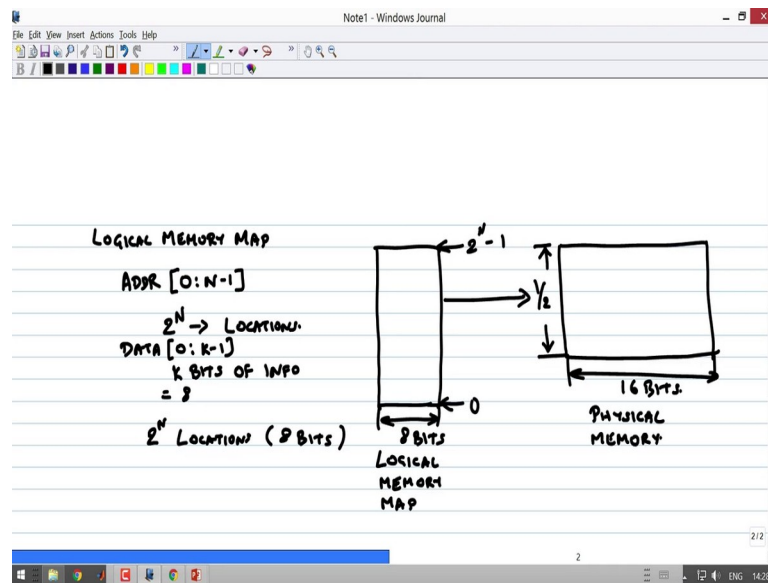 Note1 - Windows Journal
File Edit View Insert Actions Tools Help
B I
LOGICAL MEMORY MAP
ADDR [0:N-1]
2^N → LOCATIONS.
DATA [0:K-1]
K BITS OF INFO
= 8
2^N LOCATIONS (8 BITS)
2^N-1
0
8 BITS
LOGICAL
MEMORY
MAP
1/2
16 BITS.
PHYSICAL
MEMORY
2/2
2
ENG 14:28